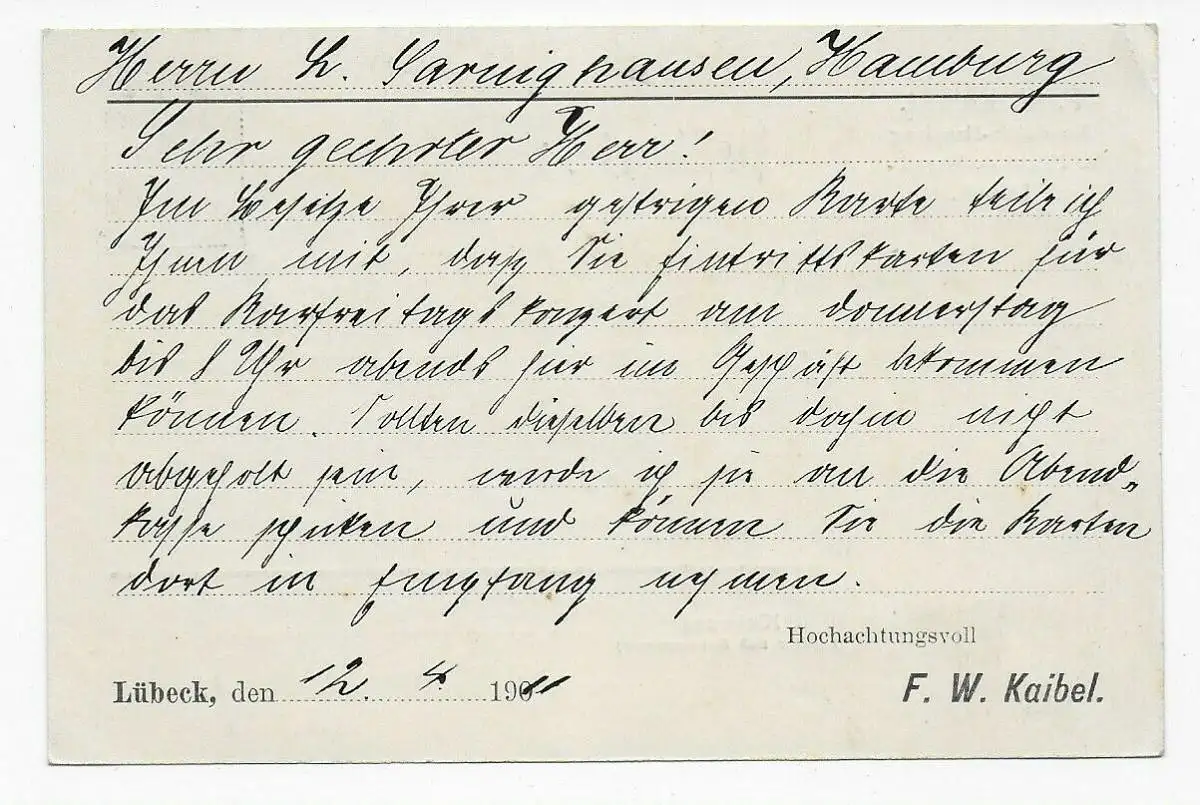 Herrn L. Sarnighausen, Hamburg
Sehr geehrter Herr!
Im Besitze Ihrer gestrigen Karte teile ich
Ihnen mit, daß Sie Eintrittskarten für
das Karfreitagskonzert am Donnerstag
bis 8 Uhr abends hier im Geschäft bekommen
können. Sollten dieselben bis dahin nicht
abgeholt sein, werde ich sie an die Abend-
kasse schicken und können Sie die Karten
dort in Empfang nehmen.
Hochachtungsvoll
Lübeck, den 12. 4. 1911
F. W. Kaibel.